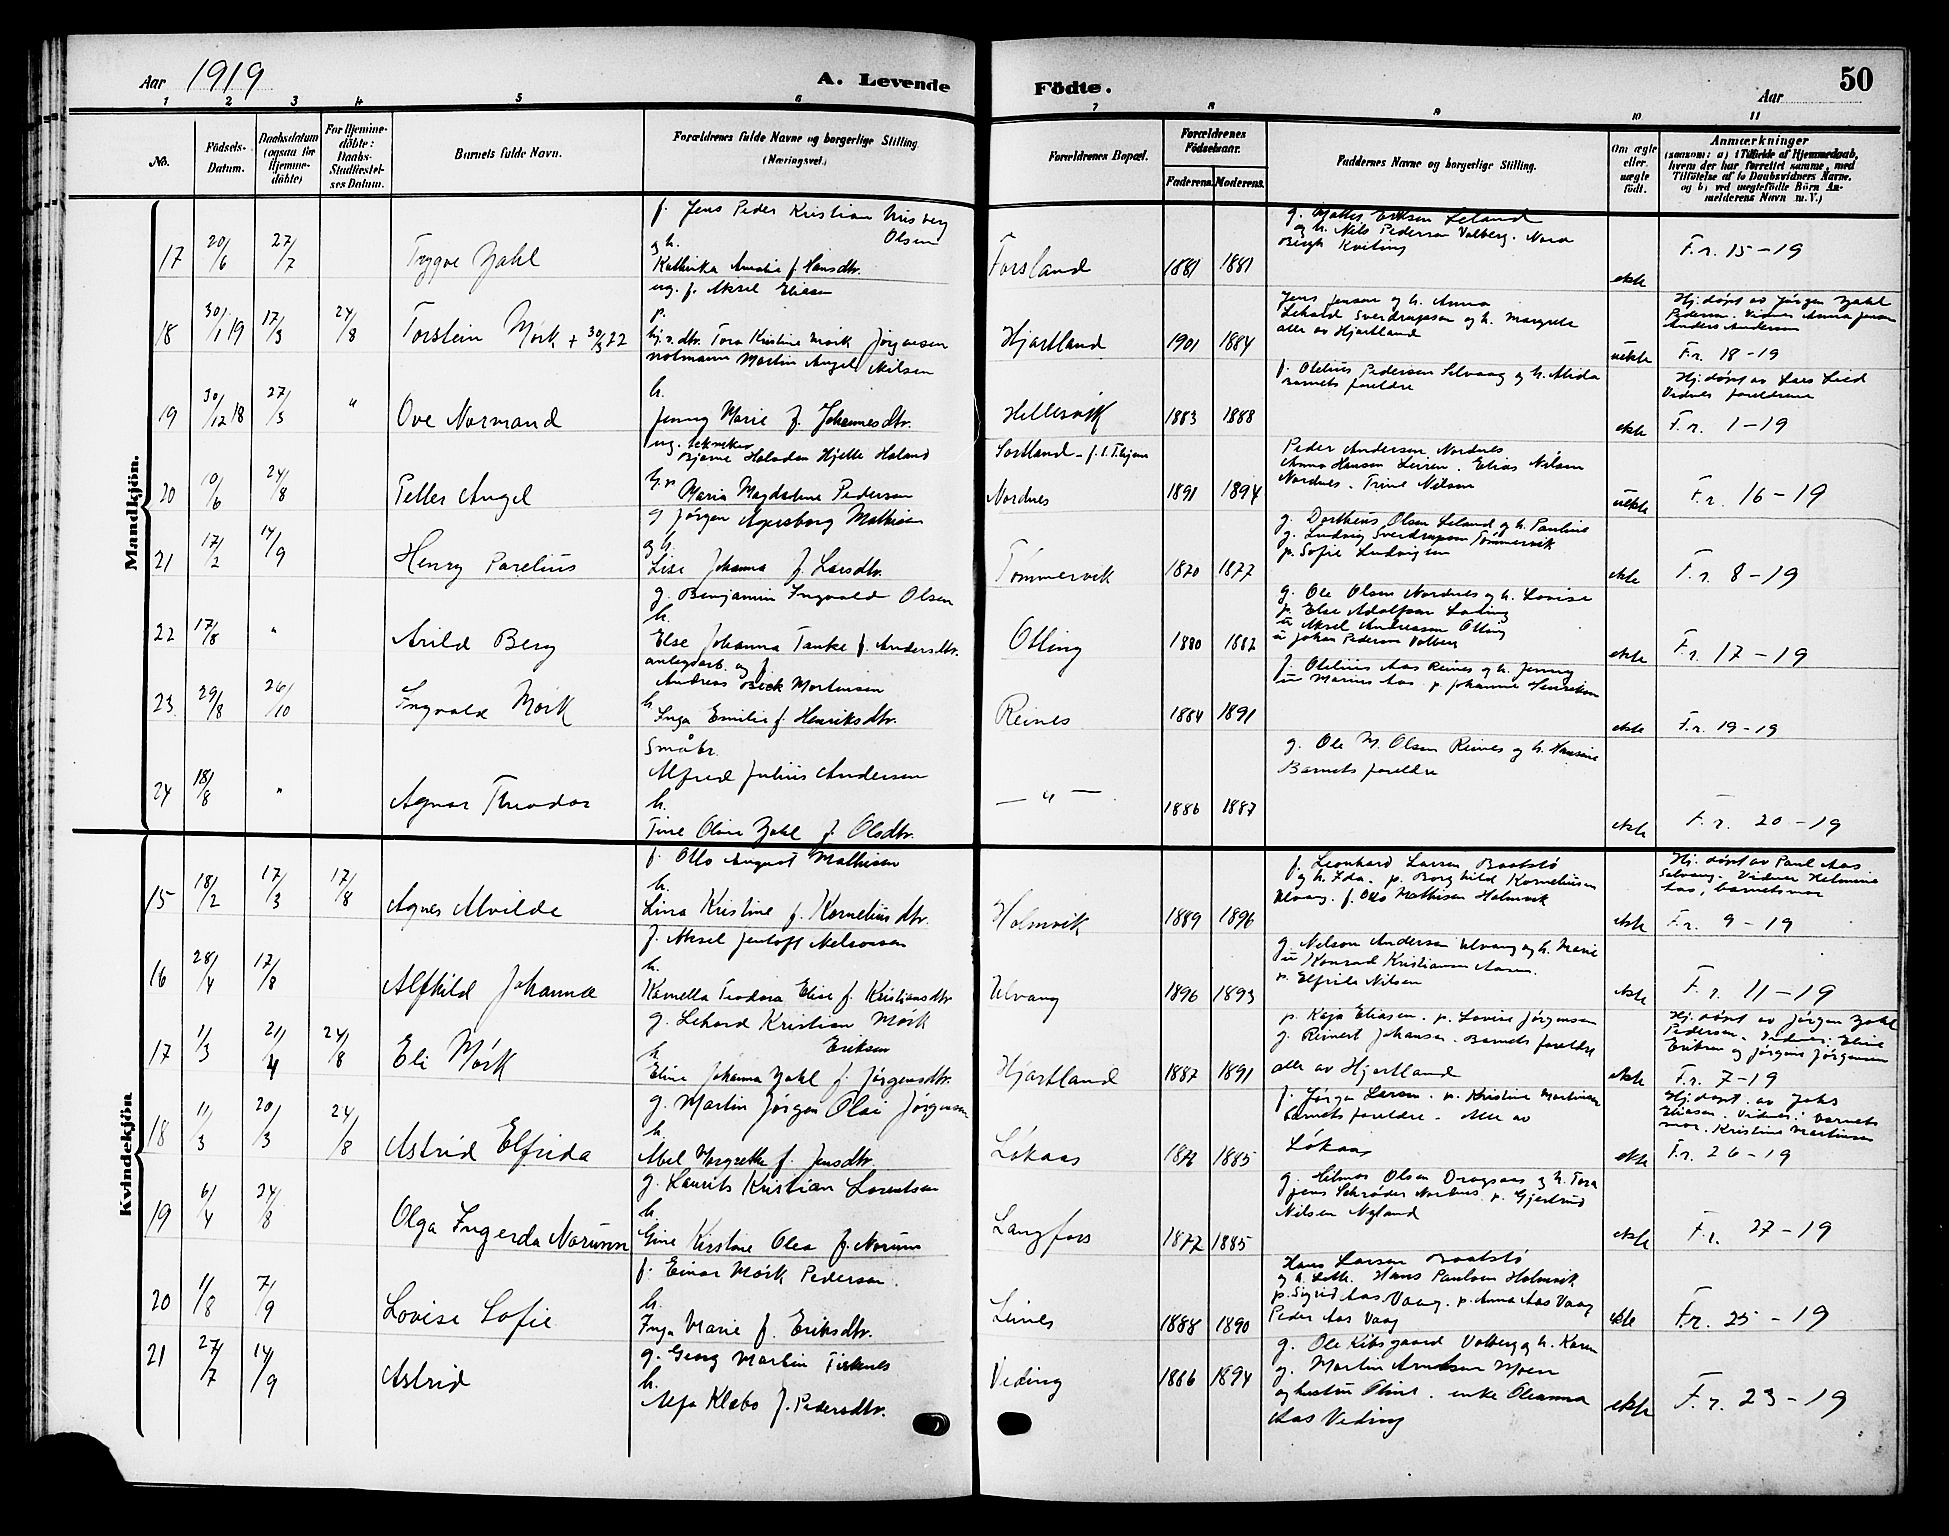 Aar 1919
A. Levende Födte.
Aar
50
1 2 3 4 5 6 7 8 9 10 11
No.
Födsels-
Datum.
Daabsdatum
(ogsaa for
Hjemme-
döbte)
For Hjemme-
döbte:
Daabs-
Stadfæstel-
ses Datum.
Barnets fulde Navn.
Forældrenes fulde Navne og borgerlige Stilling
(Næringsvei.)
Forældrenes Bopæl.
Forældrenes
Födselsaar.
Faderens. Moderens.
Faddernes Navne og borgerlige Stilling.
Om ægte
eller
uægte
födt.
Anmærkninger
(saasom: a) i Tilfælde af Hjemmedaab,
hvem der har forrettet samme, med
Tilföielse af to Daabsvidners Navne.
og b) ved uægtefödte Börn An-
melderens Navn m. V.)
Mandkjön.
17 20/6 27/7 Trygve Zahl
f. Jens Peder Kristian
Olsen
og h.
Kathrika Amalie f. Hansdtr.
Forsland 1881 1881
Leland
og h. Nils Pedersen Valberg. Nora
Kviting
ekte
F.r. 15-19
18 30/1 19 17/3 24/8 Torstein Mørk + 30/3 22
ug. f. Aksel Eliasen
p.
Tora Kristine Mørk Jørgensen
Hjartland 1901 1884
Jens Jensen og h. Anna
Lehard Sverdrupsen og h. Margrete
alle av Hjartland
uekte
Hj. døpt av Jørgen Zahl
Pedersen. Vidner Anna Jensen
Anders Andersen
F.r. 18-19
19 30/12 18 27/3 " Ove Normand
notmann Martin Angel Nilsen
h.
Jenny Marie f. Johannesdtr.
Hellesvik 1883 1888
f. Otelius Pedersen Selvaag og h. Alida
barnets foreldre
ekte
Hj. døpt av Lars Lied
Vidner foreldrene
F.r. 1-19
20 10/6 24/8 Petter Angel
ug. tekniker
Bjarne Halvdan Hjelte Haland
Maria Magdalene Pedersen
Sortland
Nordnes 1891 1894
Peder Andersen Nordnes
Anna Hansen Leiren. Elias Nilsen
Nordnes. Trine Nilsen
uekte
F.r. 16-19
21 17/2 14/9 Henry Parelius
g. Jørgen Agersborg Mathisen
og h.
Lise Johanna f. Larsdtr.
Tømmervik 1870 1877
g. Dortheus Olsen Leland og h. Pauline
g. Ludvig Sverdrupsen Tømmervik
p. Sofie Ludvigsen
ekte
F.r. 8-19
22 17/8 " Arild Berg
g. Benjamin Ingvald Olsen
h.
Else Johanna Tanke f. Andersdtr.
Olling 1880 1882
g. Ole Olsen Nordnes og h. Lovise
p. Else Adolfsen
u Aksel Andreassen Olling
u Johan Pedersen Valberg
ekte
F.r. 17-19
23. 29/8 26/10 Ingvald Mørk
anlegsarb. og f.
Andreas Beck Mortensen
h
Inga Emilie f. Henriksdtr.
Reines 1884 1891
f. Otelius Aas Reines og h. Jenny
u Marius Aas. p Johanne Henriksen
ekte
F.r. 19-19
24 18/8 " Agnar Theodor
Småbr.
Alfred Julius Andersen
h.
Tine Oline Zahl f. Olsdtr.
— " — 1886 1887
g. Ole M. Olsen Reines og h. Hansine
Barnets foreldre
ekte
F.r. 20-19
Kvindekjön
15 18/2 17/3 17/8 Agnes Alvilde
f. Otto August Mathisen
h.
Lina Kristine f. Korneliusdtr.
Holmvik 1889 1896
f. Leonhard Larsen Baatstø
og h. Ida. p. Borghild Korneliusen
Ulvang. f. Otto Mathisen Holmvik
ekte
Hj. døpt av Paul Aas
Selvaag. Vidner Helmine
Aas, barnets mor
F.r. 9-19
16 28/4 17/8 Alfhild Johanna
f. Aksel Jentoft Nelsonsen
h.
Kornella Teodora Elise f. Kristiansdtr
Ulvang 1896 1893
g. Nelson Andersen Ulvang og h. Marie
u Konrad Kristiansen Aasen.
p. Elfrida Nilsen
ekte
F.r. 11-19
17 1/3 21/4 24/8 Eli Mørk
g. Lehard Kristian Mørk
Eriksen
h
Eline Johanna Zahl f. Jørgensdtr.
Hjartland 1887 1891
p. Kaja Eliasen. p. Lovise Jørgensen
g. Reinert Johansen. Barnets foreldre
alle av Hjartland
ekte
Hj. døpt av Jørgen Zahl
Pedersen. Vidner: Eline
Eriksen og Jørgine Jørgensen
F.r. 7-19
18 11/3 20/3 24/8 Astrid Elfrida
g. Martin Jørgen Olai Jørgensen
h.
Abel Margrethe f. Jensdtr.
Løkaas 1885
f. Jørgen Larsen. p. Kristine Martinsen
Barnets foreldre. Alle av
Løkaas
ekte
Hj. døpt. av Johs
Eliasen. Vidner: barnets
mor. Kristine Martinsen
F.r. 26-19
19 6/4 24/8 Olga Ingerda Norunn
g. Laurits Kristian Lorentsen
h.
Gine Kirstine Olea f. Norum
Langfors 1877 1885
g. Hilmar Olsen Dragsaas og h. Tora
Jens Schrøder Nordnes. p. Gjertrud
Nilsen Nyland
ekte
F.r. 27-19
20 1/8 7/9 Lovise Sofie
f. Einar Mørk Pedersen.
h.
Inga Marie f. Eriksdtr.
Leines 1888 1890
Hans Larsen Baatstø
og h. Hans Paulsen Holmvik
p. Sigrid Aas Vaag. p. Anna Aas Vaag
Peder Aas Vaag
ekte
F.r. 25-19
21 27/7 14/9 Astrid
g. Georg Martin
h.
Alfa Klæbo f. Pedersdtr.
Veding 1886 1894
g. Ole Kibsgaard Valberg og h. Karen
g. Martin Arntsen Moen
og hustru Oline. enke Oleanna
Aas Veding
ekte
F.r. 23-19